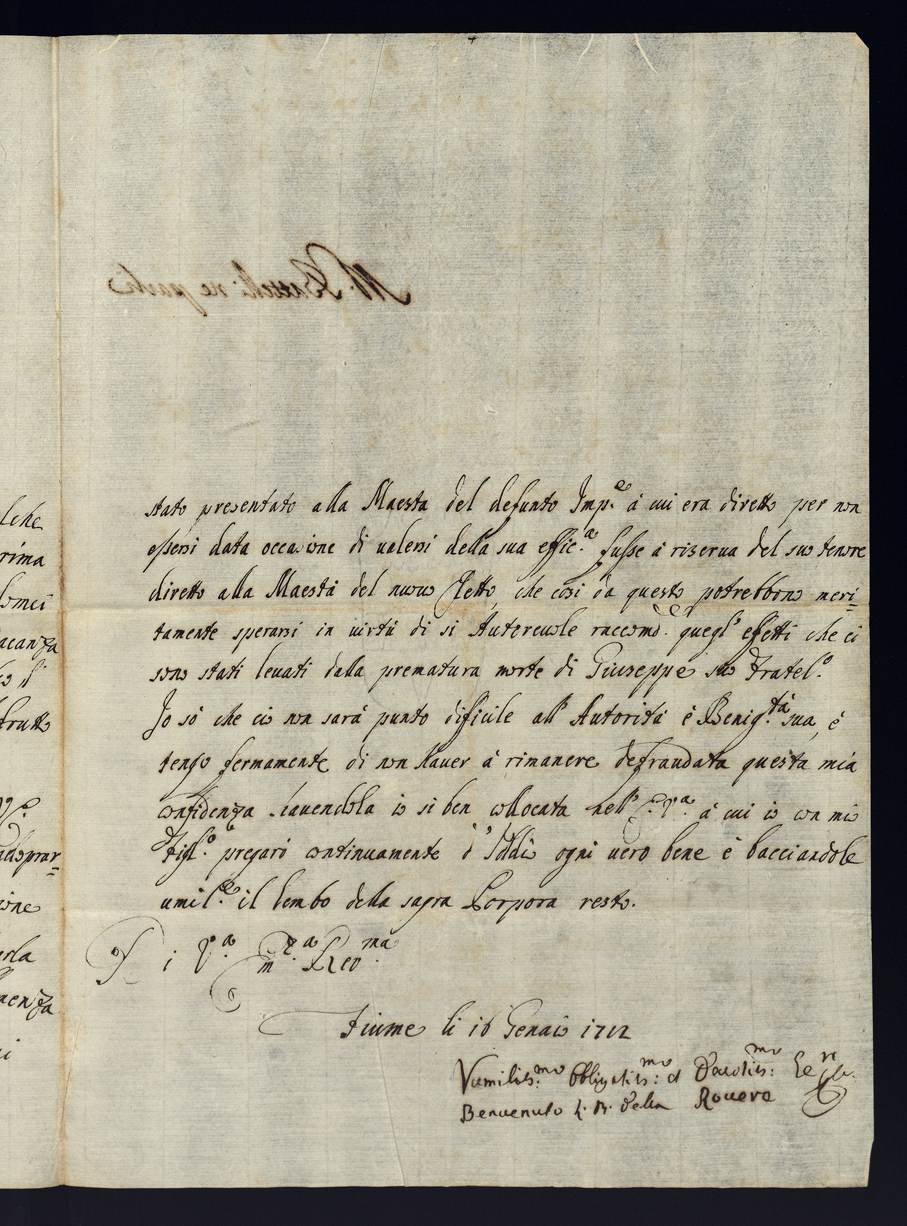 stato presentato alla Maestà del defunto Imp.e à cui era diretto per non
essersi data occasione di ualersi della sua effic.a fusse à riserua del suo tenore
diretto alla Maestà del nuouo Eletto che così da questo potrebbono meri=
tamente sperarsi in uirtù di sì Autoreuole raccomd.e quegl' effetti che ci
sono stati leuati dalla prematura morte di Giuseppe suo Fratel.o
Jo sò che ciò non sarà punto difficile all' Autorità è Benig.tà sua, è
tengo fermamente di non hauer à rimanere defraudata questa mia
confidenza hauendola io si ben collocata nell' E.V.a à cui io con mio
Figl.o pregarò continuamente d' Iddio ogni uero bene è bacciandole
umil.e il lembo della sagra Porpora resto.
V.a Em.za Reu.ma
Fiume li 16 Genaio 1712
Vumiliss:mo Obligatiss:mo et Deuotiss:mo Se.re
Benuenuto della Rouere
lche
rima
acanza
frutto
adoprar=
ione
erla